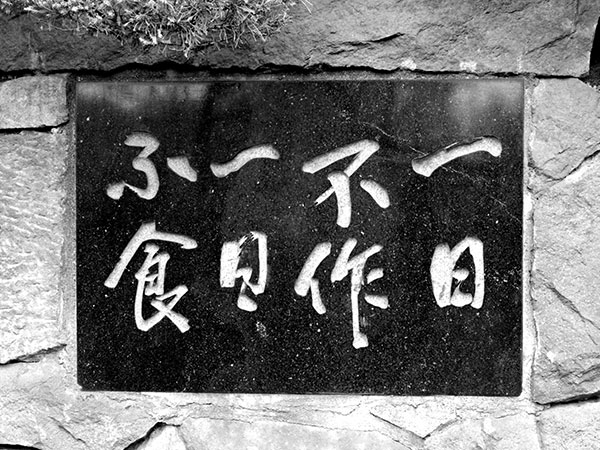 一日
不作
一日
不食